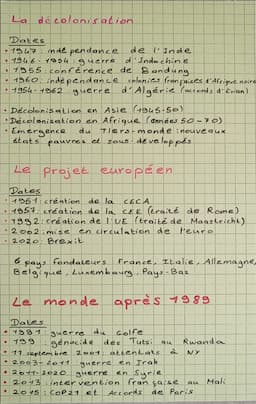 La décolonisation
Dates
• 1947 : indépendance de l'Inde
• 1946 - 1954 : guerre d'Indochine
• 1955 : conférence de Bandung
• 1960 : indépendance colonies françaises d'Afrique noire
• 1954-1962 guerre d'Algérie (accords d'Evian)
• Décolonisation en Asie (1945-50)
• Décolonisation en Afrique (années 50-70)
• Emergence du Tiers-monde : nouveaux
états pauvres et sous-développés
Le projet européen
Dates
• 1951 : création de la CECA
• 1957 : création de la CEE (traité de Rome)
• 1992 : création de l'UE (traité de Maastricht)
• 2002 : mise en circulation de l'euro
• 2020 : Brexit
6 pays fondateurs : France, Italie, Allemagne,
Belgique, Luxembourg, Pays-Bas
Le monde après 1989
Dates
• 1991 guerre du Golfe
• 199 : génocide des Tutsi au Rwanda
• 11 septembre 2001 attentats à NY
• 2003-2011 guerre en Irak
• 2011-2020 guerre en Syrie
• 2013 : intervention française au Mali
• 2015 : COP21 et Accords de Paris